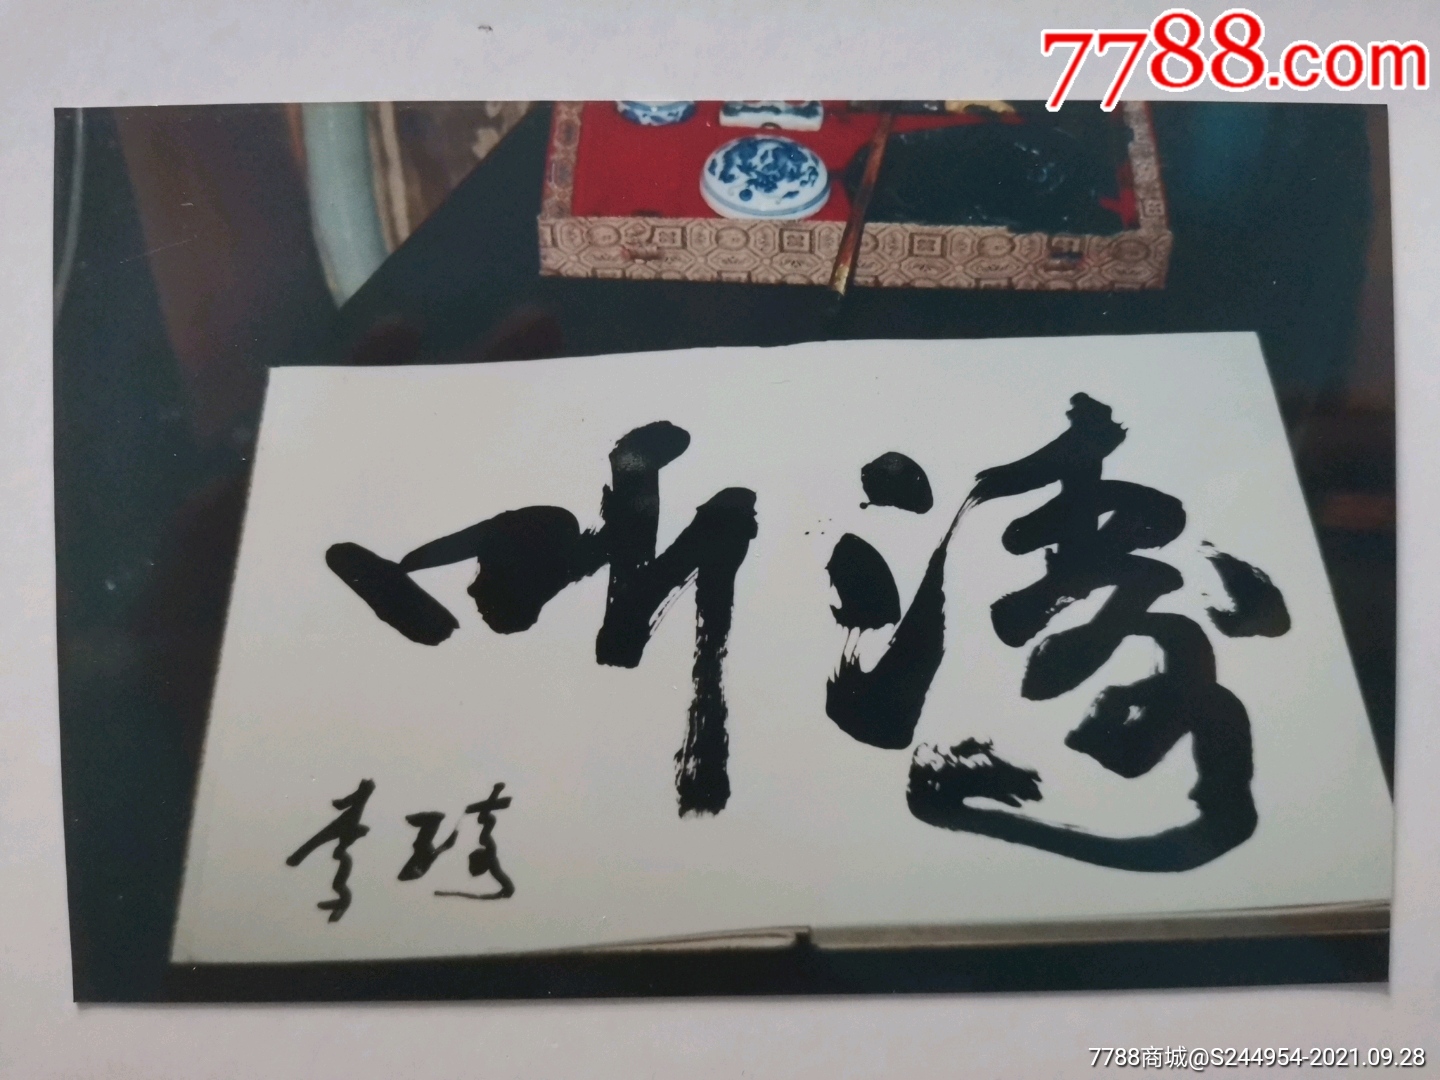 7788.com
听濤
李琦
7788商城@S244954-2021.09.28